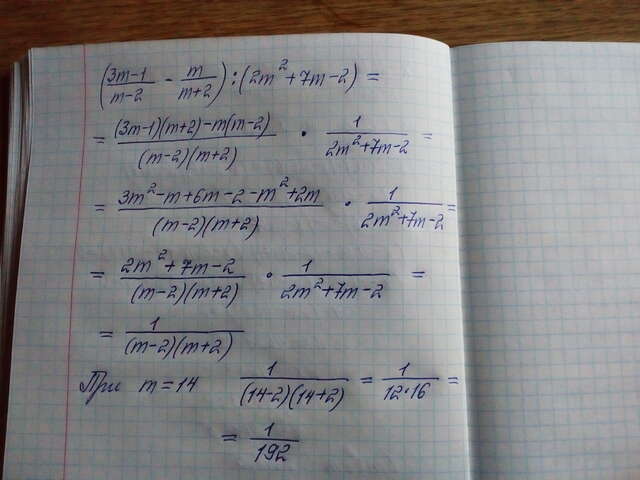 (3m-1/m-2 - m/m+2) : (2m²+7m-2) =
= (3m-1)(m+2)-m(m-2)/(m-2)(m+2) · 1/2m²+7m-2 =
= 3m²-m+6m-2-m²+2m/(m-2)(m+2) · 1/2m²+7m-2 =
= 2m²+7m-2/(m-2)(m+2) · 1/2m²+7m-2 =
= 1/(m-2)(m+2)
При m=14 1/(14-2)(14+2) = 1/12·16 =
= 1/192